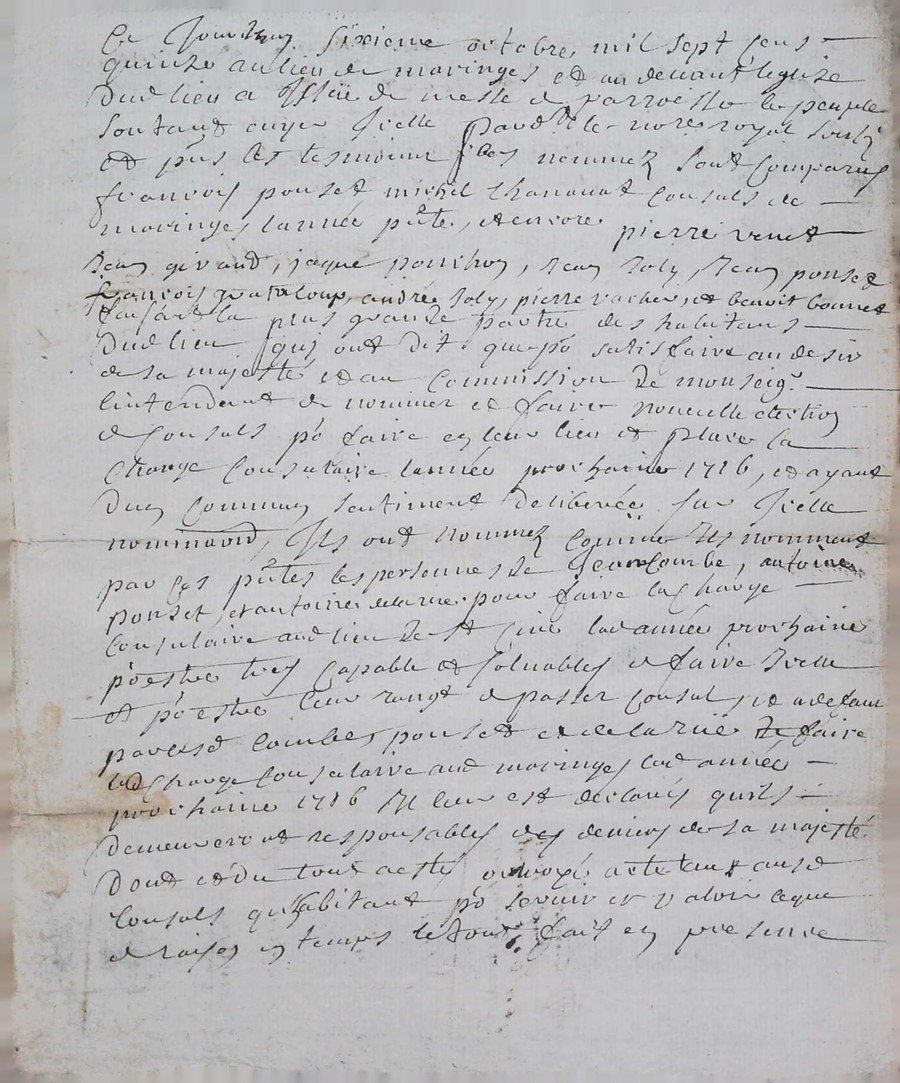 Ce Jourdhuy sixieme octobre mil sept cens
quinze au lieu de maringes et au devant leglize
dud lieu a Issüe de messe de parroisse le peuple
sortant diçelle pard le nore royal soubz
et pñs les tesmoins bas nommez sont comparus
francois ponset michel consuls de
maringes lannée pñte, et encore pierre venet
Jean giraud, jaque ponchon, Jean Joly, Jean ponset
francois grataloup, andré Joly, pierre vacher, et benoit bonnet
faisant la plus grande partie des habitans
dud lieu qui ont dit que po satisfaire au desir
de sa majesté et au commission de monseigr
lintendant de nommer et faire nouvelle election
de consuls po faire en leur lieu et place la
charge consulaire lannée prochaine 1716, et ayant
dun commun sentiment deliberée sur Icelle
nominaon, Ils ont nommez comme Ils nomment
par ces pñtes les personnes de Jean Combe, antoine
ponset, et antoine delarue pour faire la charge
consulaire aud lieu de lad année prochaine
po estre tres capable et soluables de faire Icelle
et po estre leur rangt de passer consul, et a defaut
par lesd Combe, ponset et delarue de faire
lad charge consulaire aud maringes lad année
prochaine 1716 Il leur est declarés quils
demeureront responsables des deniers de sa majesté
dont et du tout acte octroyé a tetant ausd
consuls qu habitant po servir et valoir ce que
de raison en temps le tout fait en presence